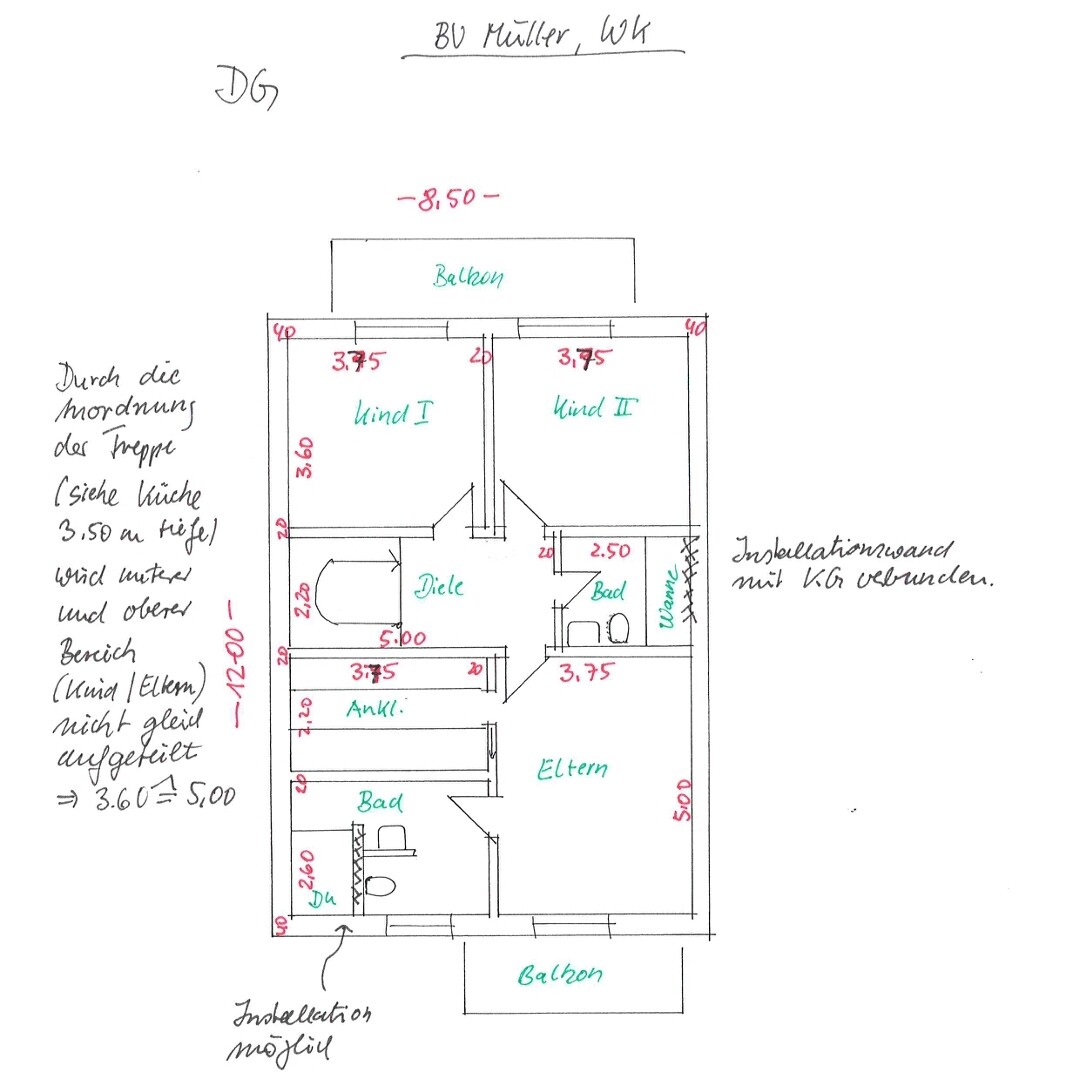 BV Müller, WK
DG
-8,50-
Balkon
40
40
3.75
20
3,75
Kind I
Kind II
3.60
Durch die
Anordnung
der Treppe
(siehe Küche
3.50 m tiefe)
wird unterer
und oberer
Bereich
(Kind/Eltern)
nicht gleich
aufgeteilt
⇒ 3.60 ≙ 5,00
-12.00-
20
20
2.50
Diele
Bad
Wanne
2,20
5.00
Installationswand
mit KG vebunden.
20
3.75
20
3.75
Ankl.
2,20
Eltern
20
Bad
5.00
2,60
Du
40
Balkon
Installation
möglich